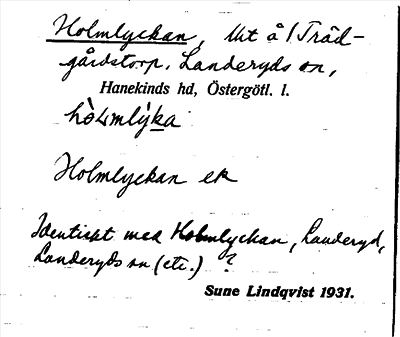 Holmlyckan, Utt å 1 Träd-
gårdstorp, Landeryds sn,
Hanekinds hd, Östergötl. l.
hò4mlý̀ka
Holmlyckan ek
Identiskt med Holmlyckan, Landeryd,
Landeryds sn (etc.) ?
Sune Lindqvist 1931.